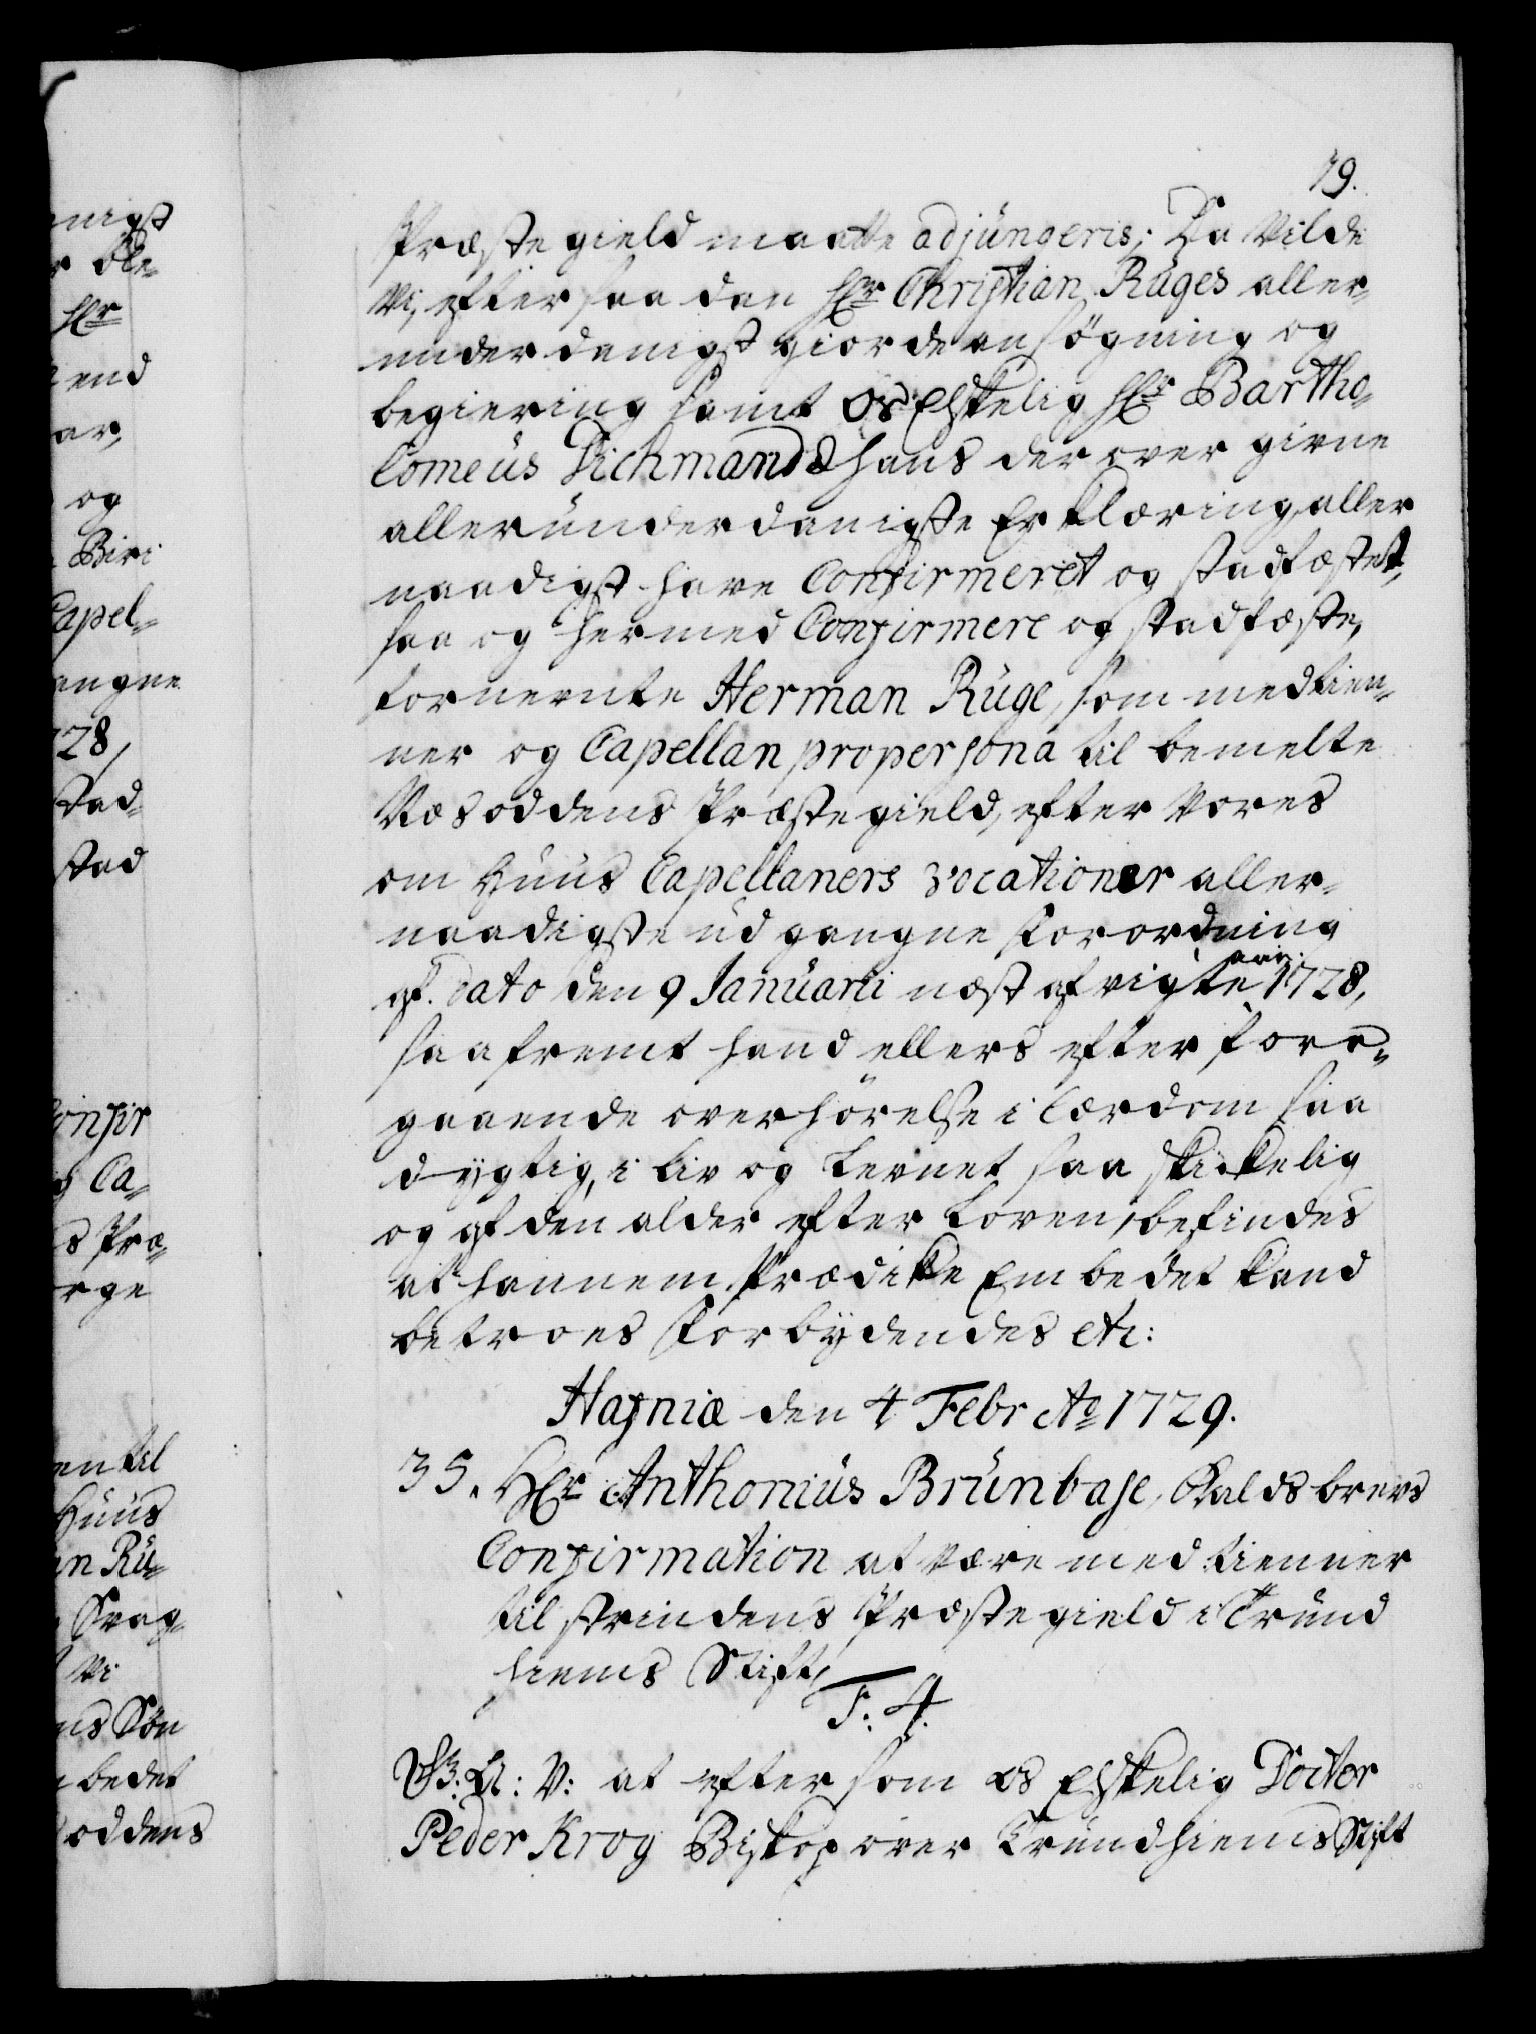 19.
Præstegield maatte adjüngeris; Da Vilde
Vi, efter saadan Hr Christian Rüges aller-
underdanigst giorde ansögning og
begiering samt Os Elskelig Hr Bartho-
lomeüs Dichmands hans derover givne
alleründerdanigste Erklæring, aller
naadigst have Confirmeret og stadfæstet,
saa og hermed Confirmere og stadfæste,
fornevnte Herman Rüge, som medtien-
ner og Capellan propersona til bemelte
Næsoddens Præstegield, efter Vores
om Huus Capellaners vocationer aller-
naadigste udgangne Forordning
af Dato den 9 Januarii næst afvigte aar 1728,
saafremt hand ellers efter fore-
gaaende overhörelse i Lærdom saa
dygtig, i Liv og Levnet saa skikkelig
og af den alder efter Loven, befindes
at hannem Prædike Embedet kand
betroes Forbÿdendes etc:
Hafniæ den 4 Febr Ao 1729.
35. Hr Anthonius Brünbase, Kaldsbrevs
Confirmation at være medtienner
til Strindens Præstegield i Trund
hiems Stift,
F: 4.
G: A: V: at eftersom os Elskelig Doctor
Peder Krog Biskop over Trundhiems Stift
nigst
Hr
end
ar,
og
Biri
Capel-
angne
728,
Stad-
stad
Confir
Ca-
s Præ-
rge
en til
Huus
an Rü-
Svag-
Vi
ns Sön
bedet
oddens